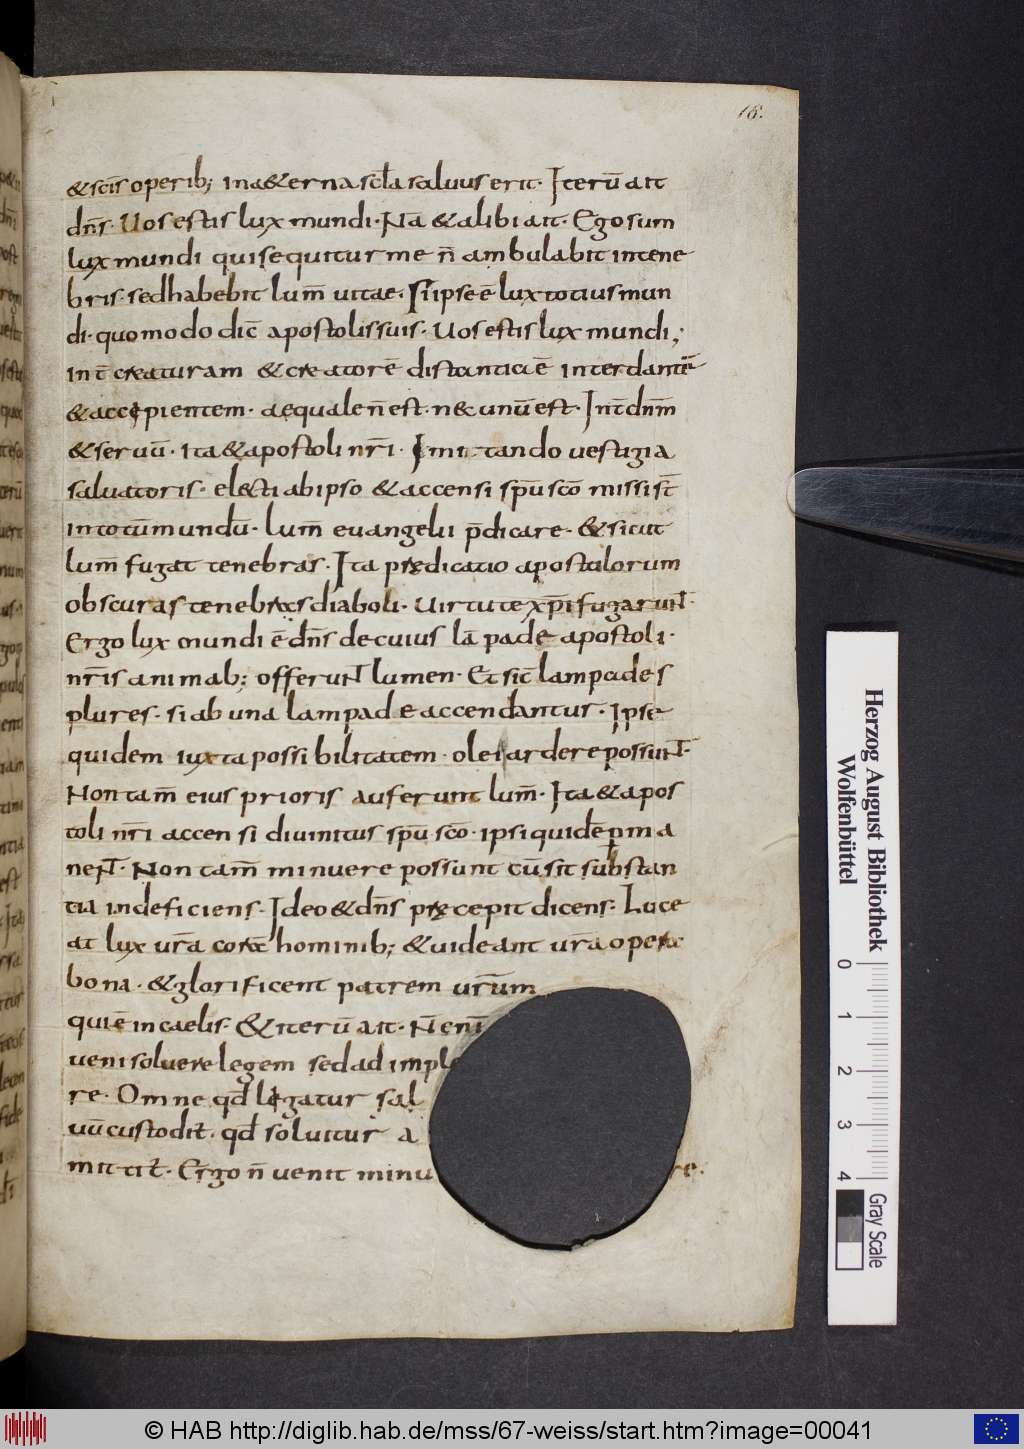 18.
&scīs operib; ina&erna scła saluus erit. Iterū ait
dn̄s. Uos estis lux mundi. Nā &alibi ait. Ego sum
lux mundi qui sequitur me n̄ ambulabit in tene
bris. sed habebit lum̄ uitae. Si ipse ē lux totius mun
di. quomodo dic̄ apostolis suis. Uos estis lux mundi;
int̄ creaturam & creatorē distantia ē inter dantē
& accipientem. aequale n̄ est. nec unū est. Int̄ dn̄m
& seruū. ita & apostoli nr̄i. Imitando uestigia
saluatoris. electi ab ipso & accensi sp̄u sc̄o missi st̄
in totū mundū. lum̄ euangelii p̄dicare. & sicut
lum̄ fugat tenebras. Ita prędicatio apostolorum
obscuras tenebras diaboli. Uirtute xp̄i fugarunt̄.
Ergo lux mundi ē dn̄s de cuius lāpade apostoli.
nr̄is animab; offerunt̄ lumen. Et sic̄ lampades
plures. si ab una lampade accendantur. Ipse
quidem iuxta possibilitatem. olei ardere possunt̄.
Non tam̄ eius prioris auferunt lum̄. Ita & apos
toli nr̄i accensi diuinitus sp̄u sc̄o. ipsi quidē pma
nent̄. Non tam̄ minuere possunt cū sit substan
tia indeficiens. Ideo & dn̄s pręcepit dicens. Luce
at lux ur̄a corā hominib; & uideant ur̄a opera
bona. & glorificent patrem ur̄um
qui ē in caelis. & iterū ait. N̄ enī
ueni soluere legem sed ad imple
re. Omne qd̄ legatur sal
uū custodit̄. qd̄ soluitur a
mittit̄. Ergo n̄ uenit minu re.
Herzog August Bibliothek
Wolfenbüttel
0 1 2 3 4
Gray Scale
© HAB http://diglib.hab.de/mss/67-weiss/start.htm?image=00041